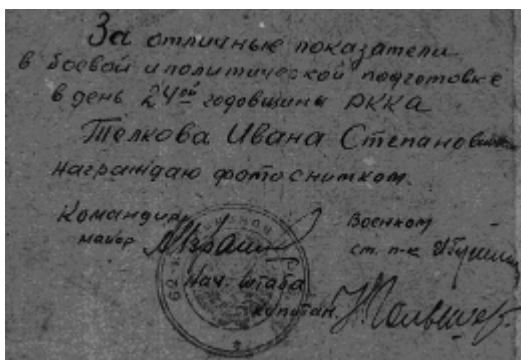 За отличные показатели
в боевой и политической подготовке
в день 24ой годовщины РККА
Телкова Ивана Степановича
награждаю фотоснимком.
Командир Военком
майор ст. п-к
Нач. штаба
капитан